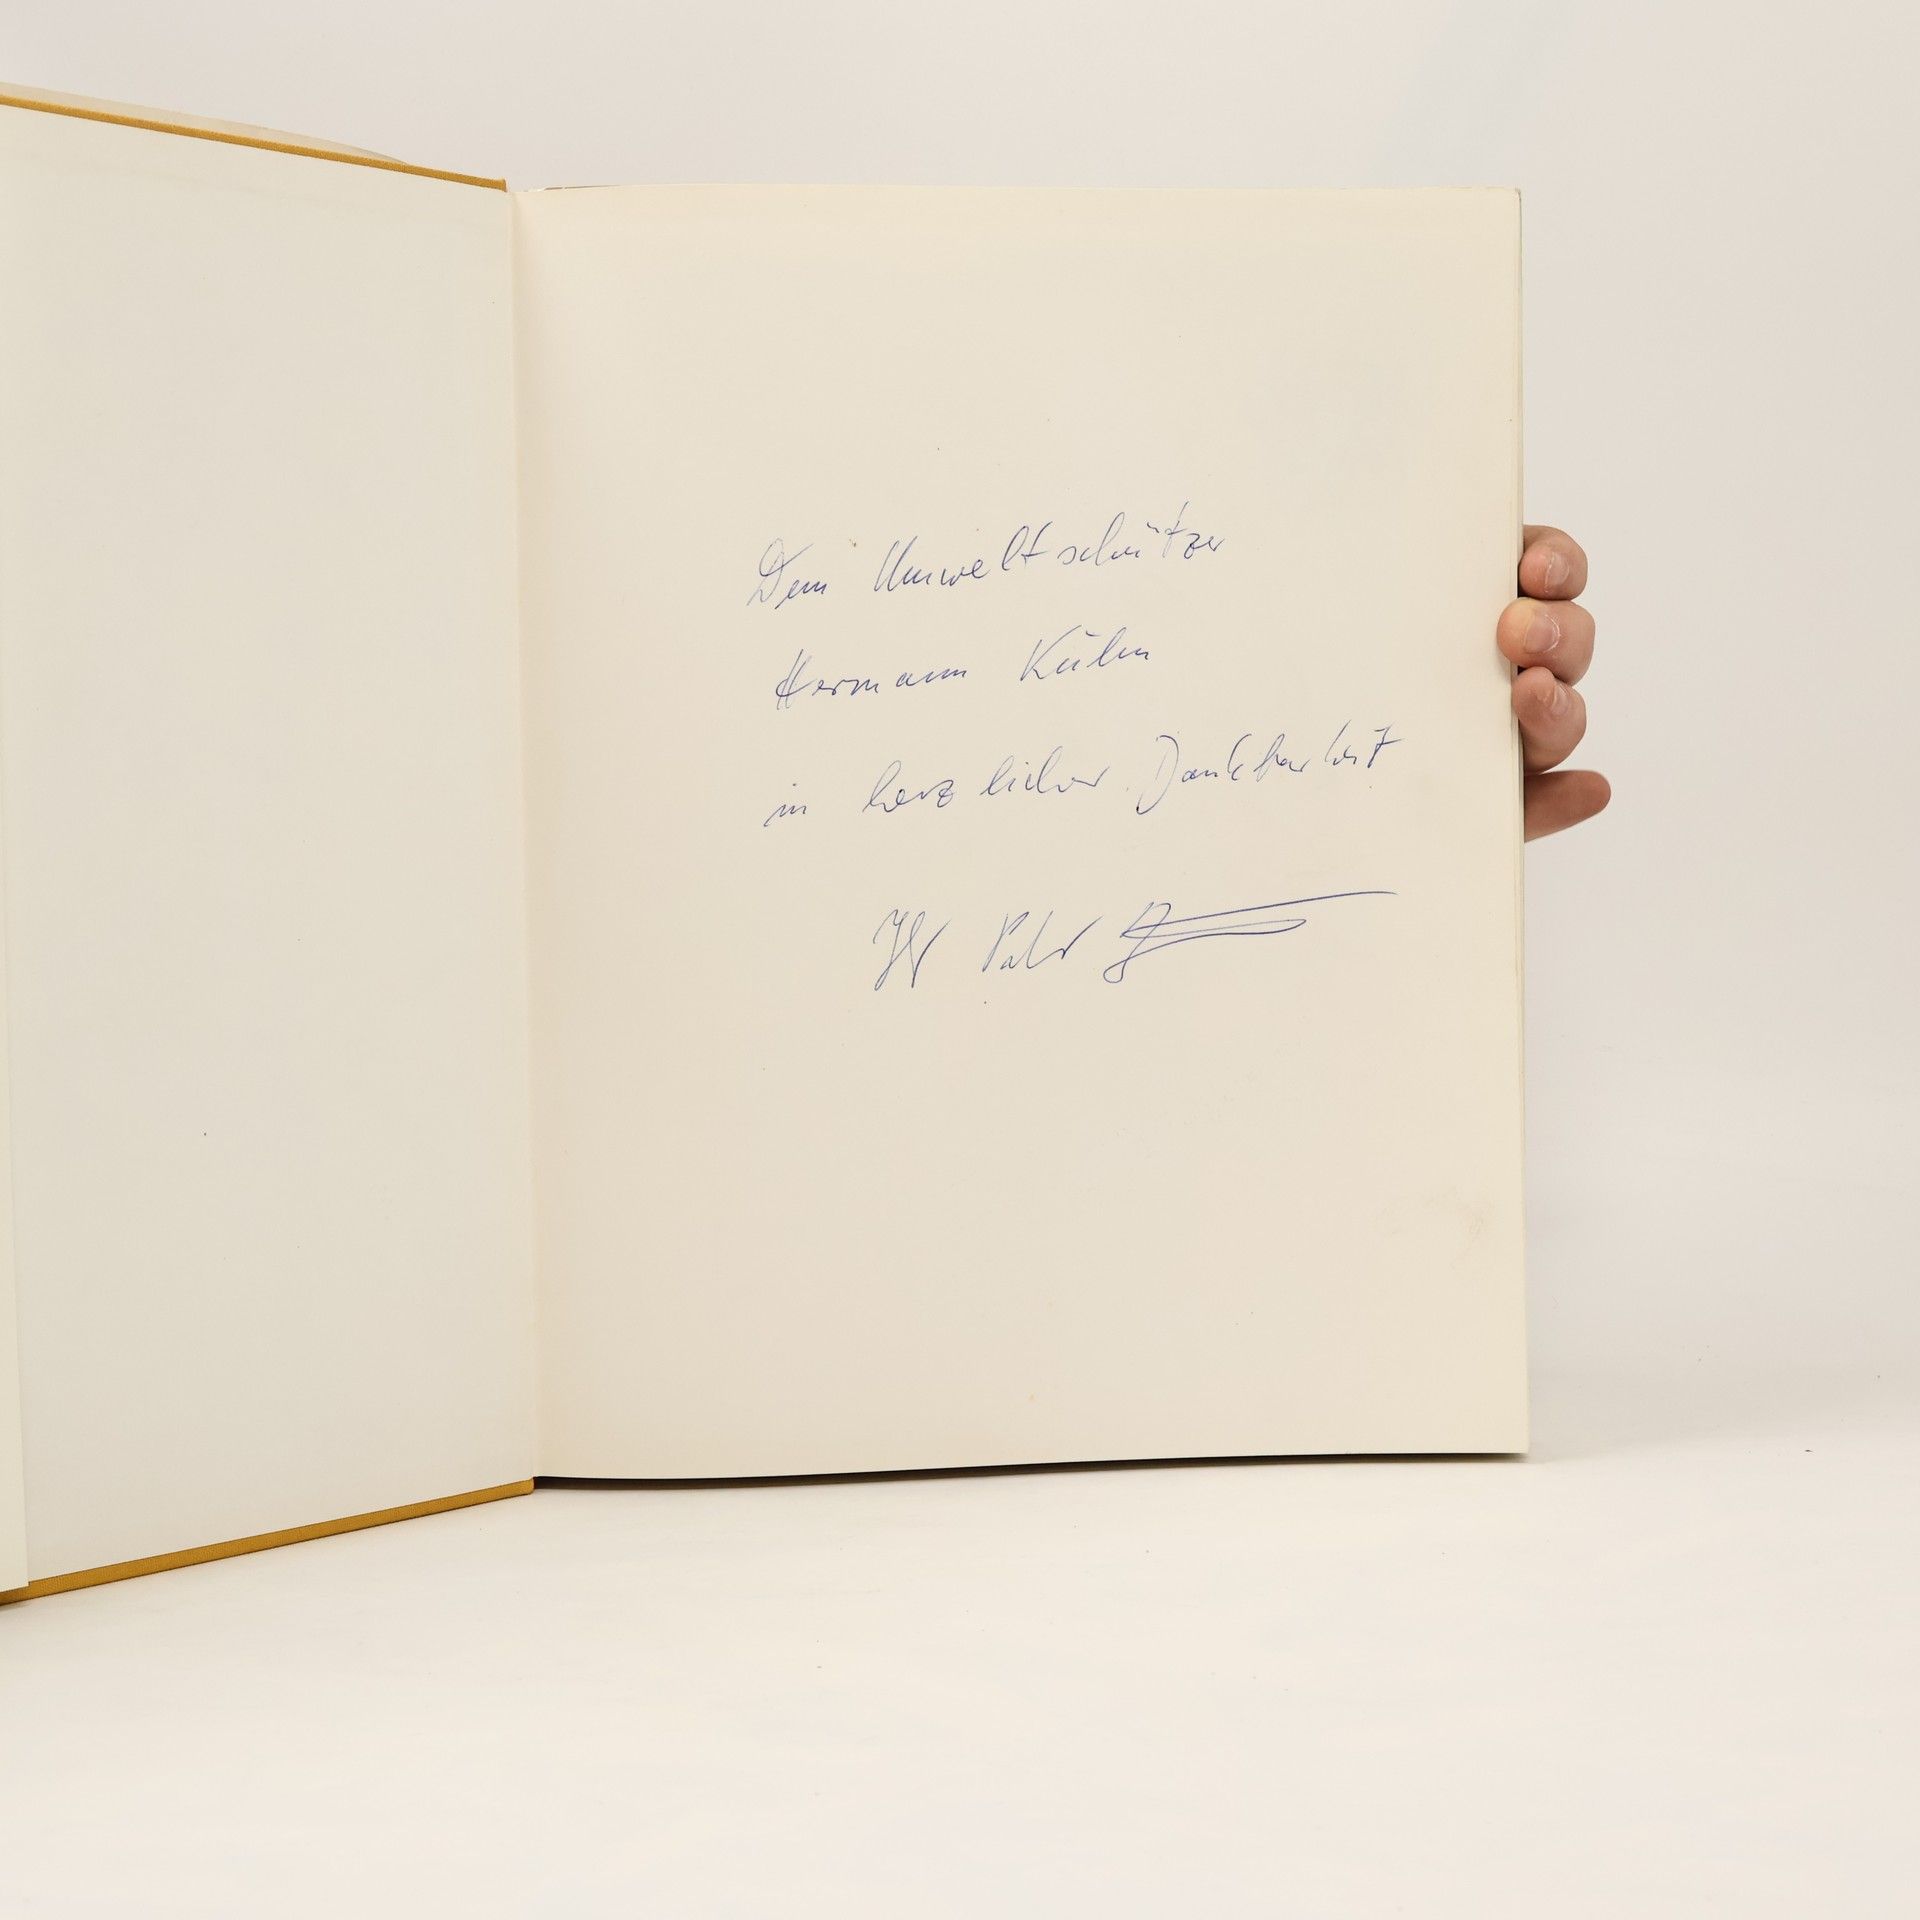 Dem Umweltschützer
Hermann Kühn
in herzlicher Dankbarkeit
Ihr